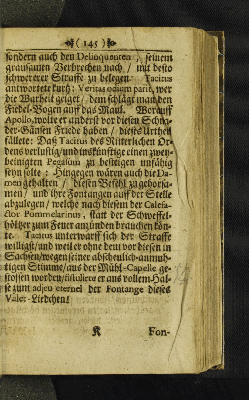 ( 145 )
sondern auch den Delinquenten, seinem
grausamen Verbrechen nach / mit desto
schwererer Straffe zu belegen. Tacitus
antwortete kurtz: Veritas odium parit, wer
die Warheit geiget / dem schlägt man den
Fiedel-Bogen auff das Maul. Worauff
Apollo, wolte er anderst vor diesen Schna-
der-Gänsen Friede haben / dieses Urtheil
fällete: Daß Tacitus des Ritterlichen Or-
dens verlustig / und ins künfftige einen zwey-
beinigten Pegasum zu besteigen unfähig
seyn solte: Hingegen wären auch die Da-
men gehalten / diesen Befehl zu gehorsa-
men / und ihre Fontangen auff der Stelle
abzulegen / welche nach diesem der Calefa-
ctor Pommelarinus, statt der Schweffel-
höltzer zum Feuer anzünden brauchen kön-
te. Tacitus unterwurff sich der Straffe
willigst / und weil er ohne dem vor diesen in
Sachsen / wegen seiner abscheulich-anmuh-
tigen Stimme / aus der Mühl-Capelle ge-
stossen worden / fistulirte er aus vollem Hal-
se zum adjeu eternel der Fontange dieses
Valet-Liedchen!
K Fon-